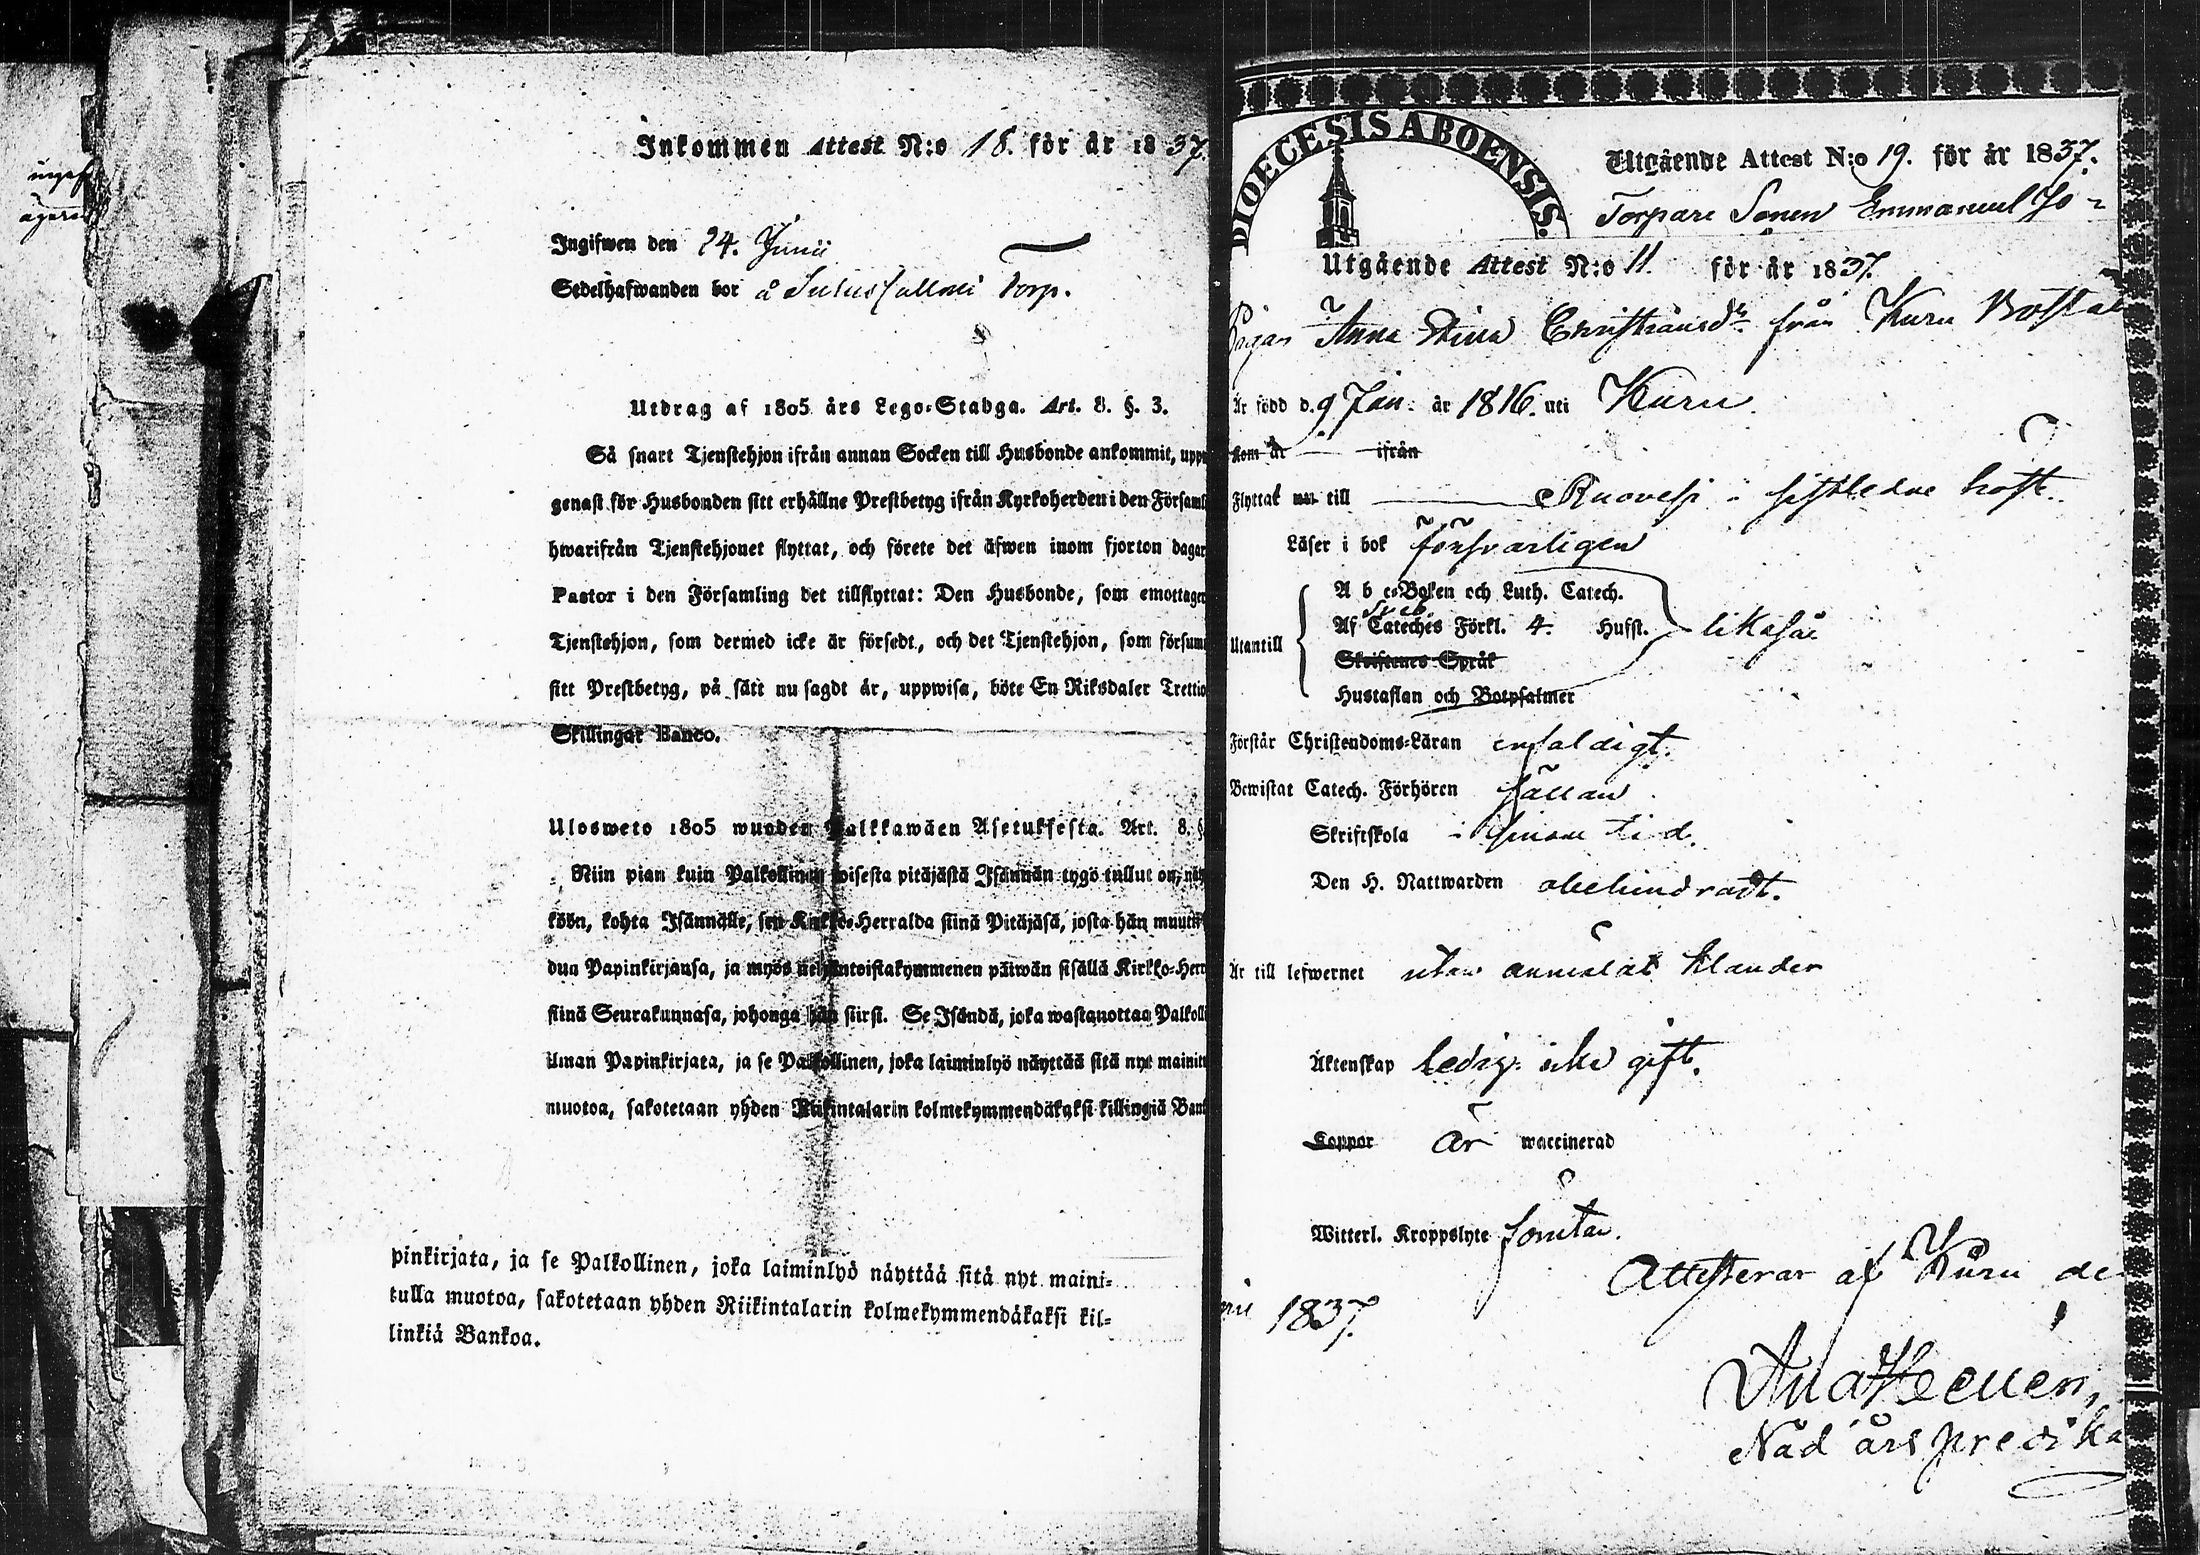 Inkommen Attest N:o 18. för år 1837.
Ingifwen den 24. Junii
Sedelhafwanden bor å Torp.
Utdrag af 1805 års Lego-Stadga. Art. 8. §. 3.
Så snart Tjenstehjon ifrån annan Socken till Husbonde ankommit, upp
genast för Husbonden sitt erhållne Prestbetyg ifrån Kyrkoherden i den Församl
hwarifrån Tjenstehjonet flyttat, och förete det äfwen inom fjorton dagar
Pastor i den Församling det tillflyttat: Den Husbonde, som emottager
Tjenstehjon, som dermed icke är försedt, och det Tjenstehjon, som försum
sitt Prestbetyg, på sätt nu sagdt är, uppwisa, böte En Riksdaler Trettio
Skillingar Banco.
Ulosweto 1805 wuoden Palkkawäen Asetuksesta. Art. 8. §
Niin pian kuin Palkollinen toisesta pitäjästä Isännän tygö tullut on, näy
köön, kohta Isännälle, sen Kirkko-Herralda siinä Pitäjäsä, josta hän muutt
dun Papinkirjansa, ja myös neljäntoistakymmenen päiwän sisällä Kirkko-Herr
siinä Seurakunnasa, johonga hän siirsi. Se Isändä, joka wastanottaa Palkolli
ilman Papinkirjata, ja se Palkollinen, joka laiminlyö näyttää sitä nyt mainitt
muotoa, sakotetaan yhden Riikintalarin kolmekymmendäkaksi killingiä Bank
pinkirjata, ja se Palkollinen, joka laiminlyö näyttää sitä nyt maini-
tulla muotoa, sakotetaan yhden Riikintalarin kolmekymmendäkaksi kil-
linkiä Bankoa.
DIOECESIS ABOENSIS.
Utgående Attest N:o 19. för år 1837.
Torpare Sonen Emmanuel Jo-
Utgående Attest N:o 11. för år 1837.
Pigan Anna Stina Christiansdr från Kuru
Är född d. 9 Jan. år 1816. uti Kuru.
Kom år ifrån
Flyttat nu till Ruovesi i sistledne höst.
Läser i bok försvarligen
Utantill
A b c-Boken och Luth. Catech.
Af Sveb. Cateches Förkl. 4. Hufst. likaså
Skriftenes Språk
Hustaflan och Botpsalmer
Förstår Christendoms-Läran enfaldigt.
Bewistat Catech. Förhören sällan.
Skriftskola i sinom tid.
Den H. Nattwarden obehindradt.
Är till lefwernet utan anmäldt klander
Äktenskap ledig icke gift.
Koppor är waccinerad
Witterl. Kroppslyte förutan.
Attesterar af Kuru de
nii 1837.
Nådårspredika